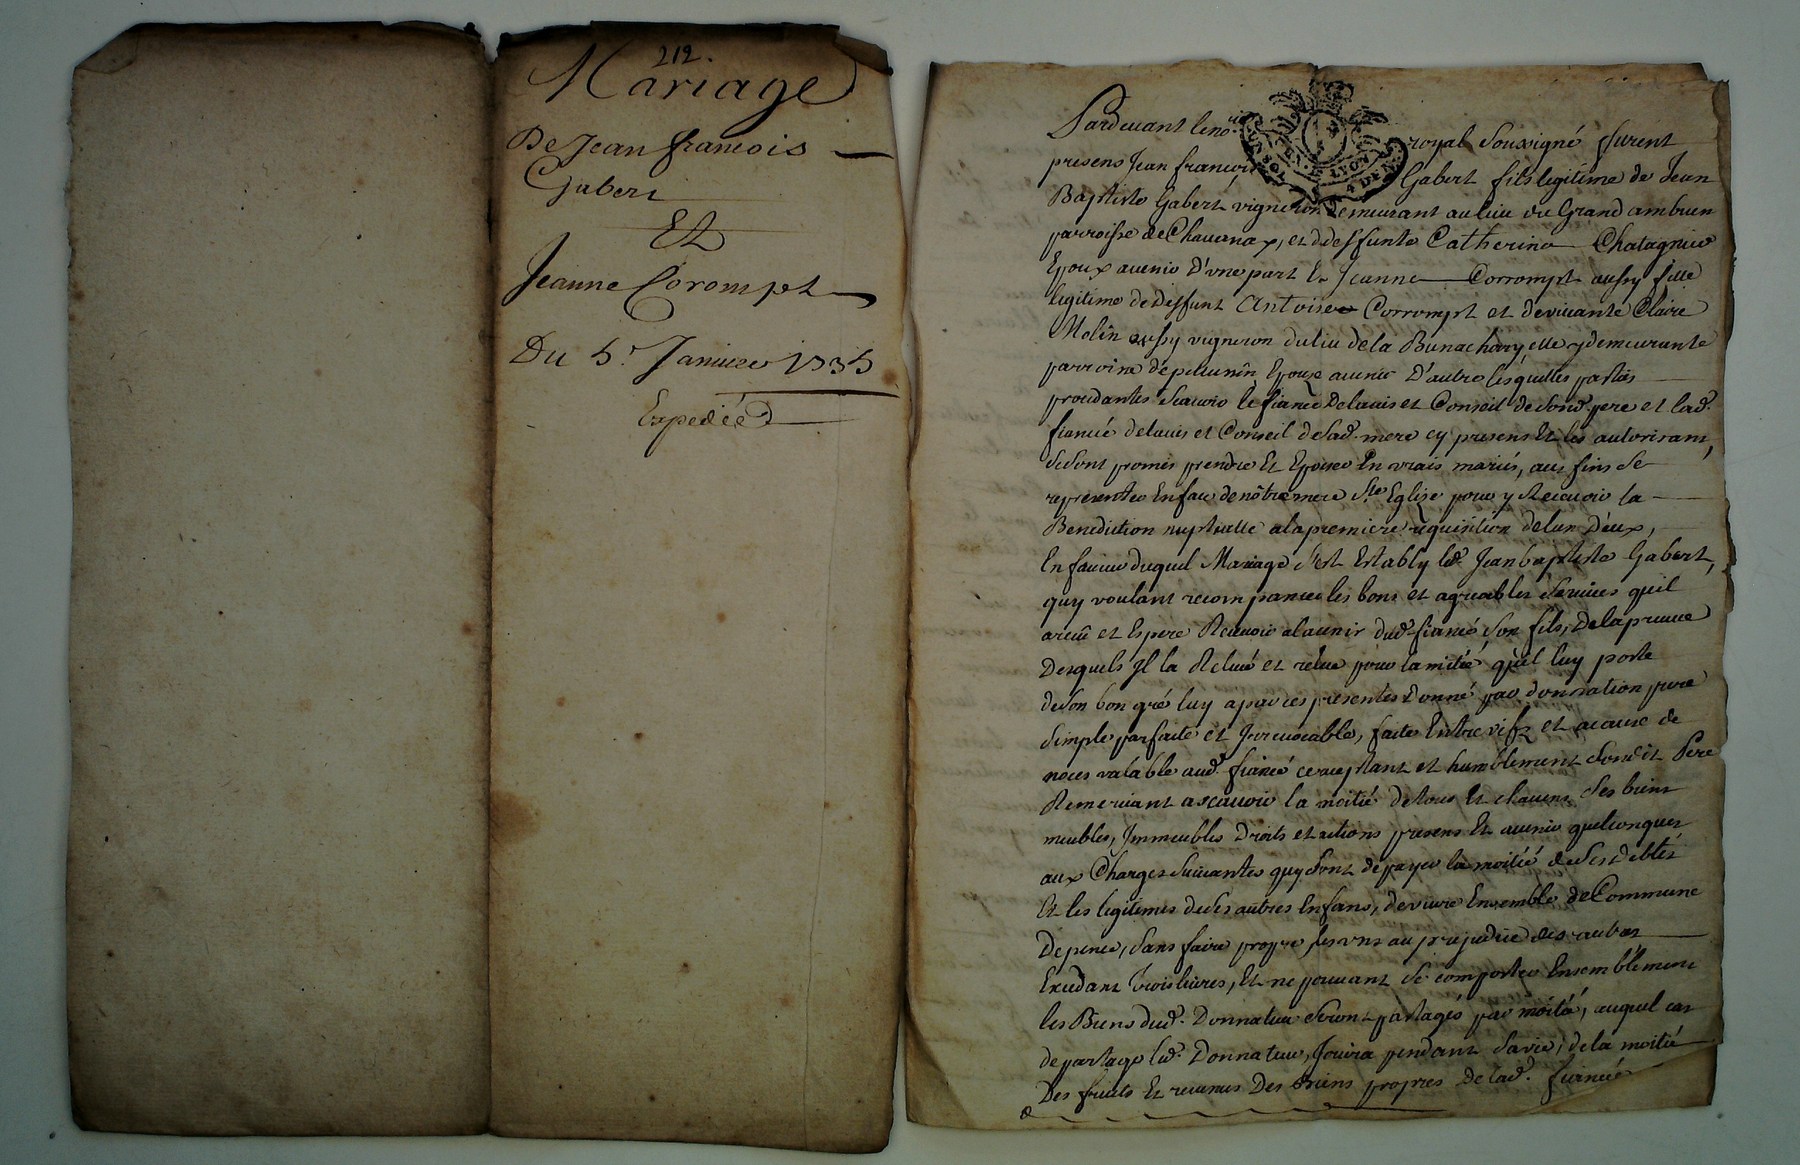 212.
Mariage
De Jean francois
Gabert
Et
Jeanne Corompt
Du 5e Janvier 1735
Expediée
Pardevant le nore royal soussigné furent
presens Jean francois Gabert fils legitime de Jean
Baptiste Gabert vigneron demeurant au lieu du Grand ambuen
parroisse de Chavanax, et de deffunte Catherine Chatagnier
Epoux avenir D'une part Et Jeanne Corrompt aussy fille
legitime de deffunt Antoine Corrompt et de vivante Claire
Molin aussy vigneron du lieu de la Bunachary, elle y demeurante
parroisse de pelussin Epouze avenir D'autre lesquelles parties
procedantes scavoir le fiancé De lavis et Conseil de sond. pere et lad.
fiancée de lavis et Conseil de sad. mere cy presens Et les autorisant,
se sont promis prendre Et Epouser En vrais mariés, aux fins se
representer En face de nôtre mere Ste Eglise pour y Recevoir la
Benediction nuptialle a la premiere requisition de lun D'eux,
En faveur duquel Mariage s'est Estably led. Jean baptiste Gabert,
quy voulant recompancer les bons et agreables services quil
a receu et Espere Recevoir a lavenir dud. fiancé son fils, De la preuve
Desquels Il la Relevé et releve pour lamitié qu'il luy porte
de son bon gré luy a par ces presentes Donné par donnation pure
simple parfaite et Irrevocable, faite Entre vifz et a cause de
noces valable aud. fiancé acceptant et humblement sondit Pere
Remerciant ascavoir la moitié de tous Et chacuns ses biens
meubles, Immeubles Droits et actions presens Et avenir quelconques
aux Charges suivantes quy sont de payer la moitié de ses debtes
Et les legitimes de ses autres Enfans, de vivre Ensemble de Commune
Depence, sans faire propre les uns au prejudice des autres
Excedant Trois livres, Et ne pouvant se comporter Ensemblement
les Biens dud. Donnateur seront partagés par moitié, auquel cas
de partage led. Donnateur, Jouira pendant sa vie, de la moitié
Des fruits Et revenus Des Biens propres De lad. fiancée